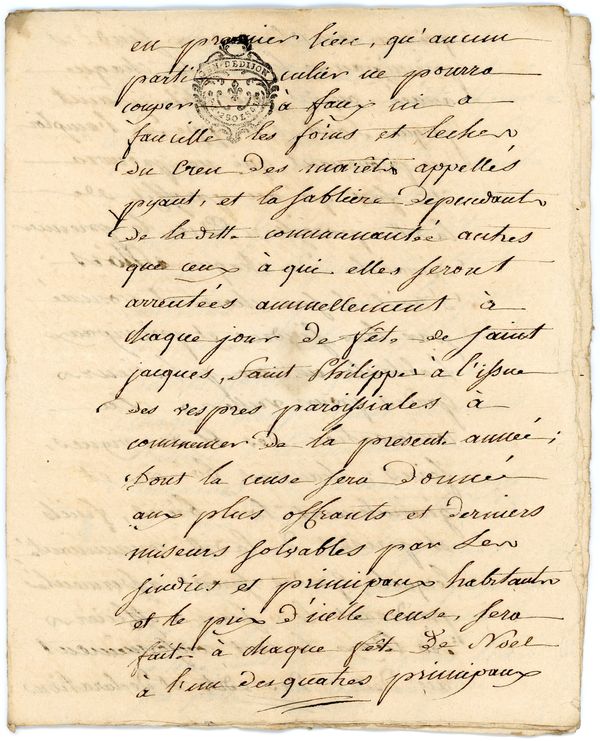 en premier lieu, qu'aucun
particulier ne pourra
couper à faux ni a
faucille les foins et lecher
du Creu des marêts appellés
pyant, et la sabliere dependants
de la ditte communautée autres
que ceux à qui elles seront
arrentées annuellement à
chaque jour de fête de saint
jacques, Saint Philippe à l'issue
des vespres paroissiales à
commencer de la presente année;
Dont la cense sera donnée
aux plus offrants et derniers
miseurs solvables par Les
sindics et principaux habitants
et le prix d'icelle cense, sera
faite à chaque fête De Noel
à l'un des quatres principaux
DEDIJON